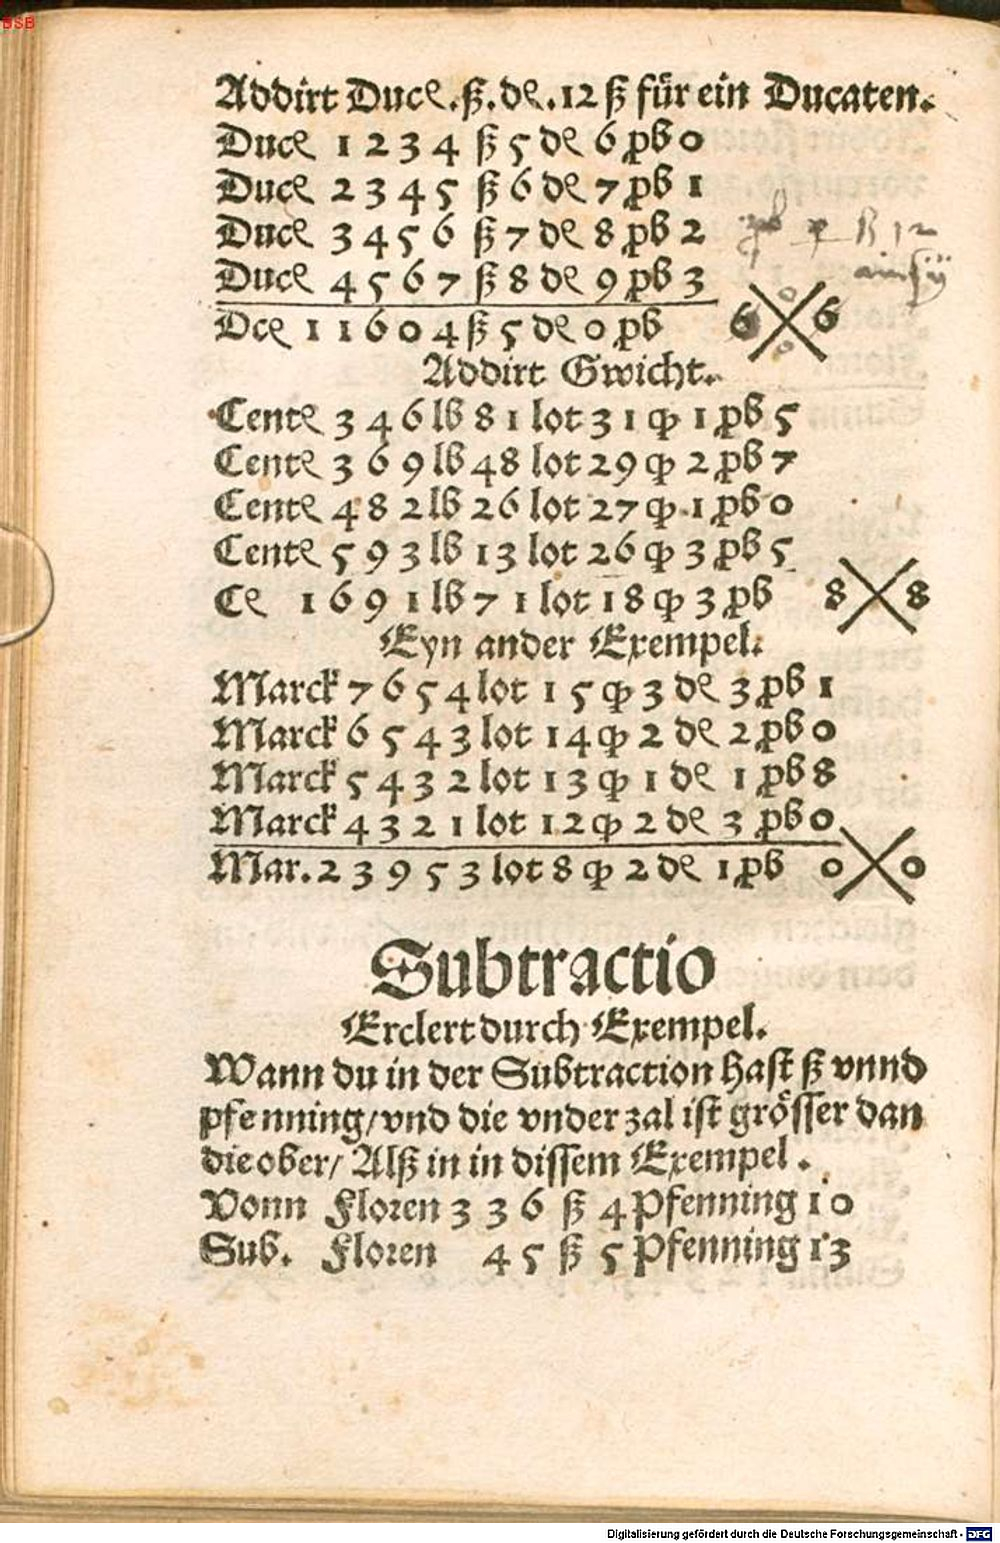 BSB
Addirt Ducꝭ.ß.dꝭ.12 ß für ein Ducaten.
Ducꝭ 1 2 3 4 ß 5 dꝭ 6 ꝓb 0
Ducꝭ 2 3 4 5 ß 6 dꝭ 7 ꝓb 1
Ducꝭ 3 4 5 6 ß 7 dꝭ 8 ꝓb 2
Ducꝭ 4 5 6 7 ß 8 dꝭ 9 ꝓb 3
Dcꝭ 1 1 6 0 4 ß 5 dꝭ 0 ꝓb 6 6
Addirt Gwicht.
Centꝭ 3 4 6 lb 8 1 lot 3 1 qꝓ 1 ꝓb 5
Centꝭ 3 6 9 lb 48 lot 29 qꝓ 2 ꝓb 7
Centꝭ 4 8 2 lb 26 lot 27 qꝓ 1 ꝓb 0
Centꝭ 5 9 3 lb 13 lot 26 qꝓ 3 ꝓb 5
Cꝭ 1 6 9 1 lb 7 1 lot 18 qꝓ 3 ꝓb 8 8
Eyn ander Exempel.
Marck 7 6 5 4 lot 1 5 qꝓ 3 dꝭ 3 ꝓb 1
Marck 6 5 4 3 lot 14 qꝓ 2 dꝭ 2 ꝓb 0
Marck 5 4 3 2 lot 13 qꝓ 1 dꝭ 1 ꝓb 8
Marck 4 3 2 1 lot 12 qꝓ 2 dꝭ 3 ꝓb 0
Mar. 2 3 9 5 3 lot 8 qꝓ 2 dꝭ 1 ꝓb 0 0
Subtractio
Erclert durch Exempel.
Wann du in der Subtraction hast ß vnnd
pfenning/vnd die vnder zal ist grösser dan
die ober/ Alß in in dissem Exempel.
Vonn Floren 3 3 6 ß 4 Pfenning 1 0
Sub. Floren 4 5 ß 5 Pfenning 13
Digitalisierung gefördert durch die Deutsche Forschungsgemeinschaft - DFG